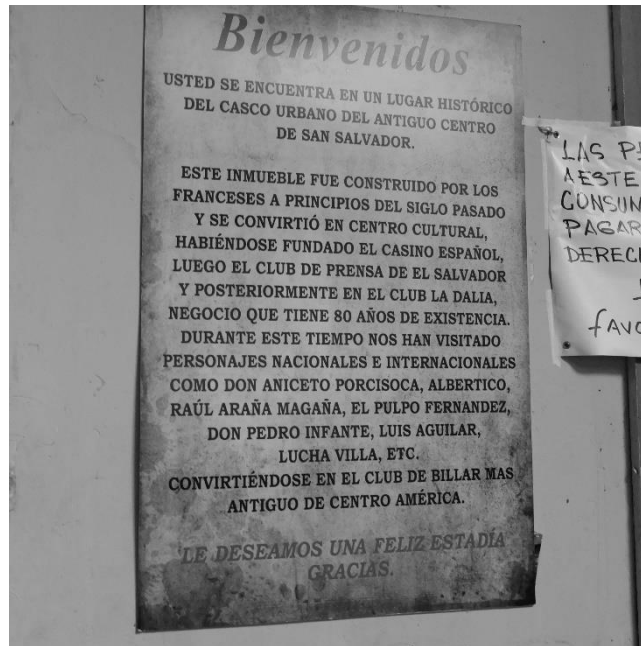 Bienvenidos
USTED SE ENCUENTRA EN UN LUGAR HISTÓRICO
DEL CASCO URBANO DEL ANTIGUO CENTRO
DE SAN SALVADOR.
ESTE INMUEBLE FUE CONSTRUIDO POR LOS
FRANCESES A PRINCIPIOS DEL SIGLO PASADO
Y SE CONVIRTIÓ EN CENTRO CULTURAL,
HABIÉNDOSE FUNDADO EL CASINO ESPAÑOL,
LUEGO EL CLUB DE PRENSA DE EL SALVADOR
Y POSTERIORMENTE EN EL CLUB LA DALIA,
NEGOCIO QUE TIENE 80 AÑOS DE EXISTENCIA.
DURANTE ESTE TIEMPO NOS HAN VISITADO
PERSONAJES NACIONALES E INTERNACIONALES
COMO DON ANICETO PORCISOCA, ALBERTICO,
RAÚL ARAÑA MAGAÑA, EL PULPO FERNANDEZ,
DON PEDRO INFANTE, LUIS AGUILAR,
LUCHA VILLA, ETC.
CONVIRTIÉNDOSE EN EL CLUB DE BILLAR MAS
ANTIGUO DE CENTRO AMÉRICA.
LE DESEAMOS UNA FELIZ ESTADÍA
GRACIAS.
LAS
AESTE